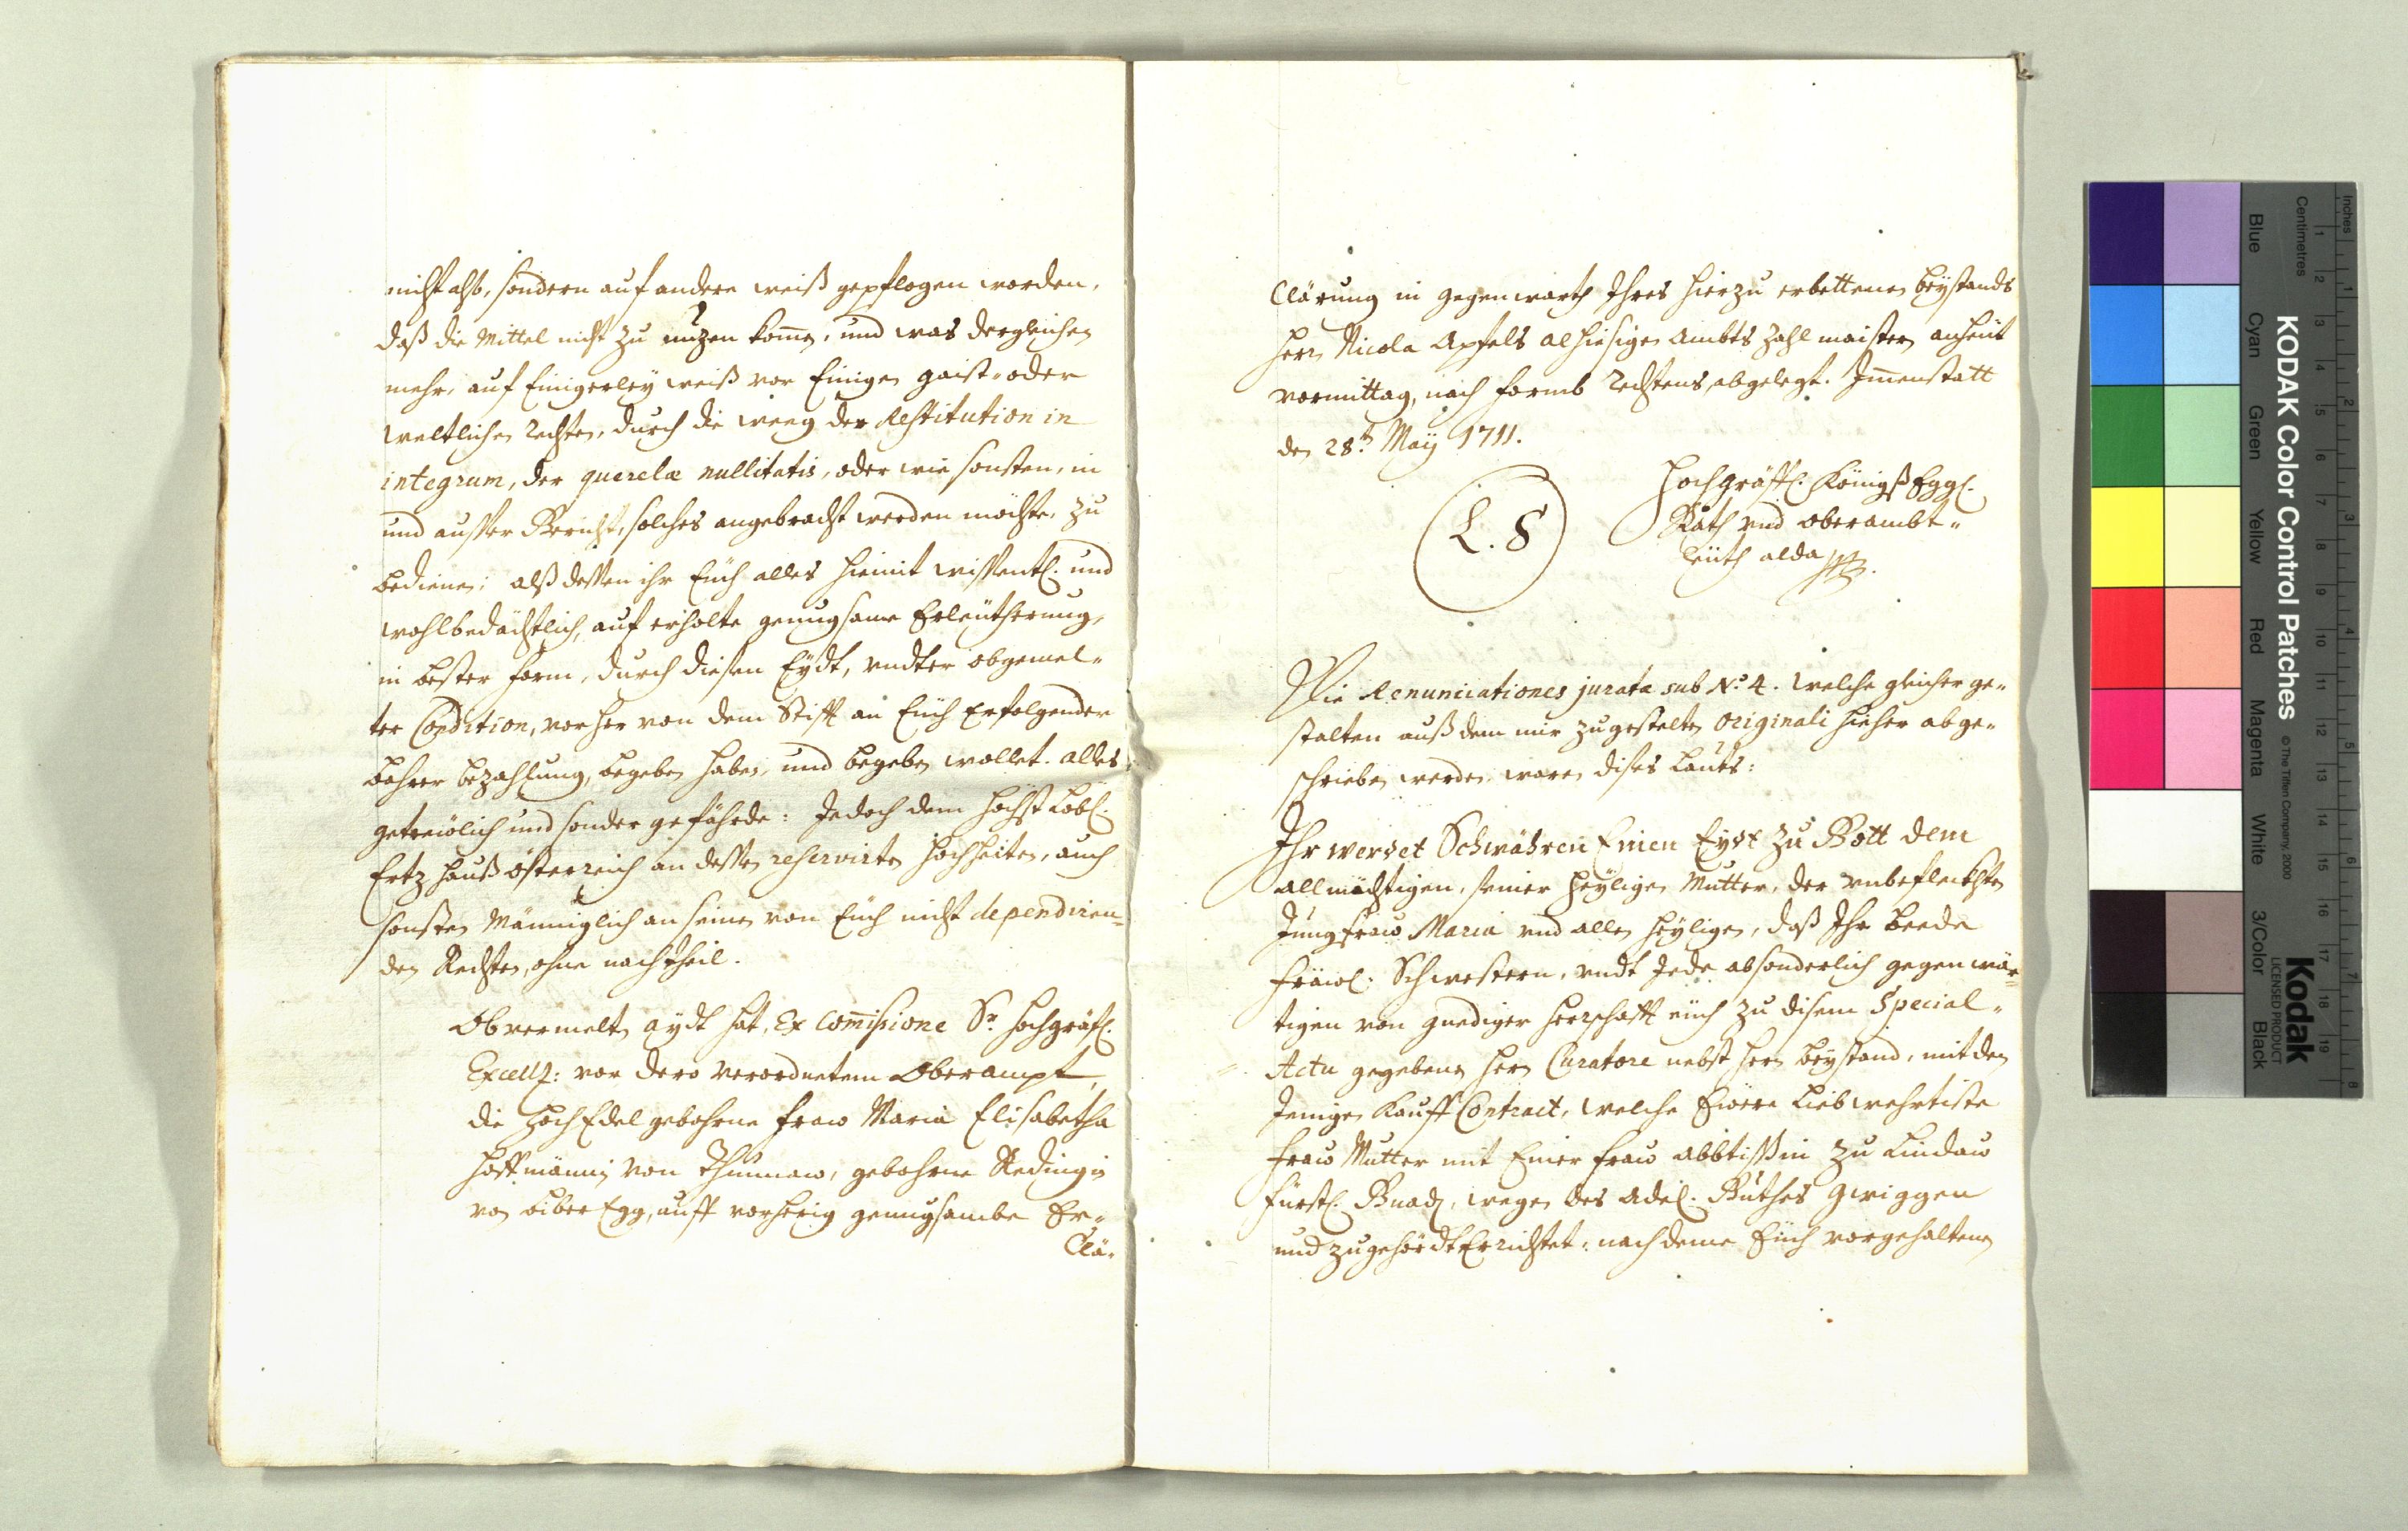 nicht also, sondern auf andere weiß gepflogen worden,
daß die Mittel nicht zu nuzen kom̄en, und was dergleichen
mehr, auf Einigerley weiß vor Einigen gaist- oder
weltlichen rechten, durch die weeg der Restitution in
integrum, der querelæ nullitatis, oder wie sonsten, in
und ausser Gericht, solches angebracht werden möchte, zu
bedienen; alß dessen ihr Euch alles hiemit wissentl. und
wohlbedächtlich, auf erholte genugsame Erleütherung,
in bester form, durch diesen Eydt, undter obgemel-
ter Condition, vorher von dem Stifft an Euch Erfolgender
bahrer bezahlung, begeben haben, und begeben wollet. alles
getreülich und sonder gefährde: Jedoch dem höchstLöbl.
Ertzhauß Österreich an dessen reservirten Hochheiten, auch
sonsten Männiglich an seinen von Euch nicht dependiren-
den Rechten, ohne nachtheil.
Obvermelten aydt hat, Ex Com̄issione Sr. Hochgräfl.
Excellz: vor dero verordnetem Oberampt,
die HochEdelgebohrne fraw Maria Elisabetha
Hoffmännin von Thumaw, gebohrne Redingin
von BiberEgg, auff vorherig genugsambe Er-
Clä-
Clärung in gegenwarth Ihres hierzu erbettenen beystands
herrn Nicola Apfels alhiesigen Ambts Zahlmaistern anheüt
vormittag, nach formb Rechtens, abgelegt. Im̄enstatt
den 28ten Maÿ 1711.
Hochgräffl. KönigßEggl.
L. S
Räth und Oberambt-
leüth alda
Die Renunciationes juratæ sub No. 4. welche gleicherge-
stalten auß dem mir zugestelten Originali hieher abge-
schrieben werden, waren dises Lauts:
Ihr werdet Schwähren Einen Eydt zu Gott dem
allmächtigen, seiner heyligen Mutter, der unbefleckhten
Jungfraw Maria und allen heyligen, daß Ihr beede
fräwl. Schwestern, undt Jede absonderlich gegenwär-
tigen von gnediger herrschafft eüch zu disem Special-
Actu gegebenen herrn Curatore nebst herrn beystand, mit dem
Jenigen Kauff Contract, welchen Ewere Liebwehrtiste
fraw Mutter mit Einer fraw Abbtissin zu Lindaw
fürstl. Gnaden, wegen des Adel. Guthes Gwiggen
und zugehördt Errichtet: nach deme Euch vorgehaltenen